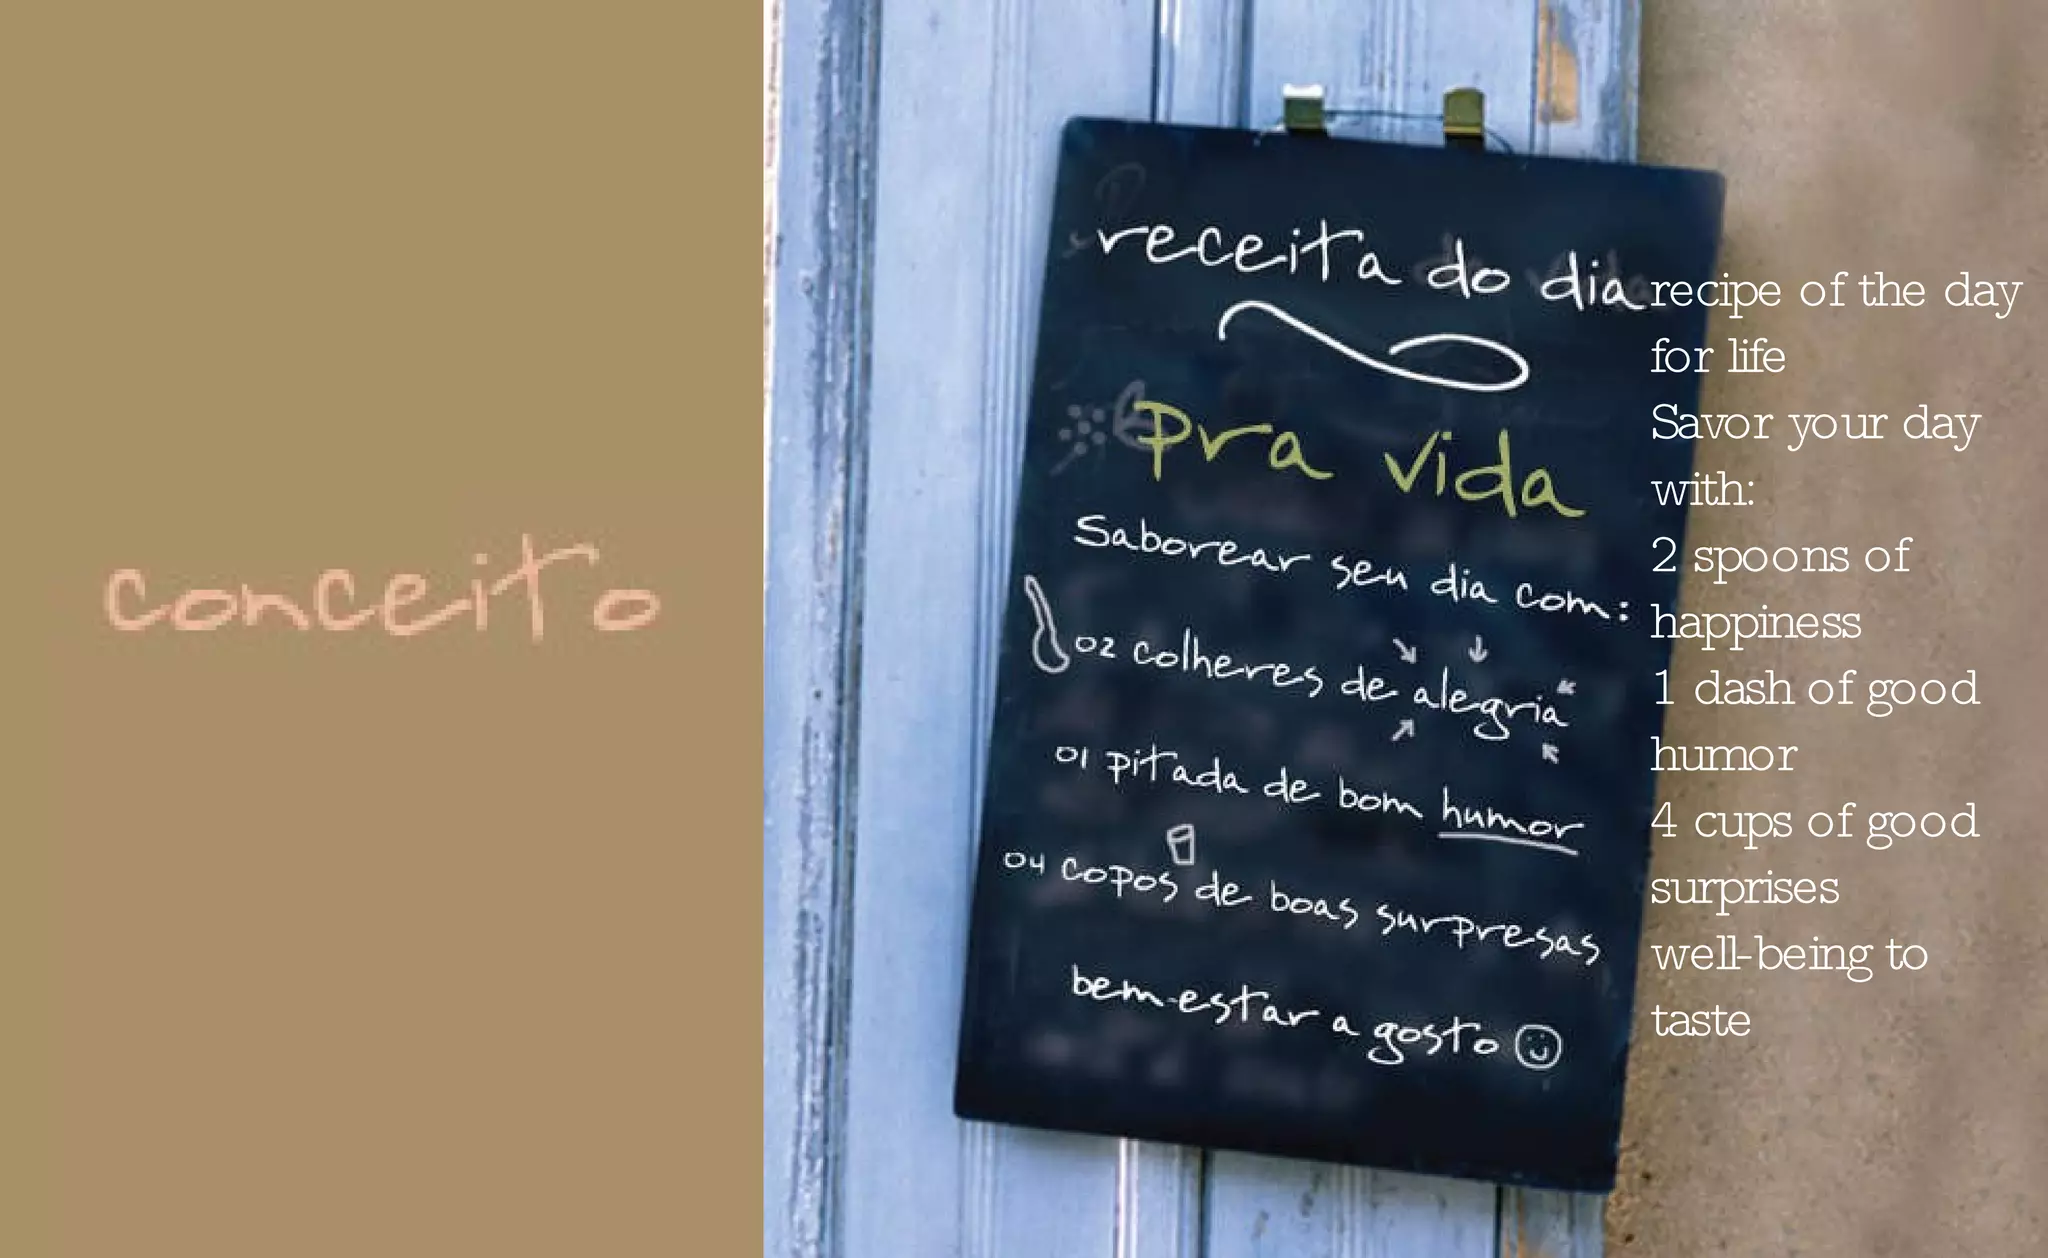 conceito
receita do dia
pra vida
Saborear seu dia com:
02 colheres de alegria
01 pitada de bom humor
04 copos de boas surpresas
bem-estar a gosto
recipe of the day
for life
Savor your day
with:
2 spoons of
happiness
1 dash of good
humor
4 cups of good
surprises
well-being to
taste